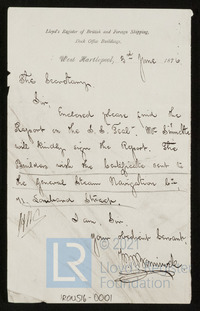 Lloyd's Register of British and Foreign Shipping,
Dock Office Buildings,
West Hartlepool, 8th June 1876
The Secretary
Sir,
Enclosed please find the
Report on the S.S. "Teal". Mr
will kindly sign the Report. The
Builders wish the Certificate sent to
the General Steam Navigation Co
71 Lombard Street.
I am Sir
Your obedient Servant,
© 2021
LR
Lloyd's Register
Foundation
LRF-0001